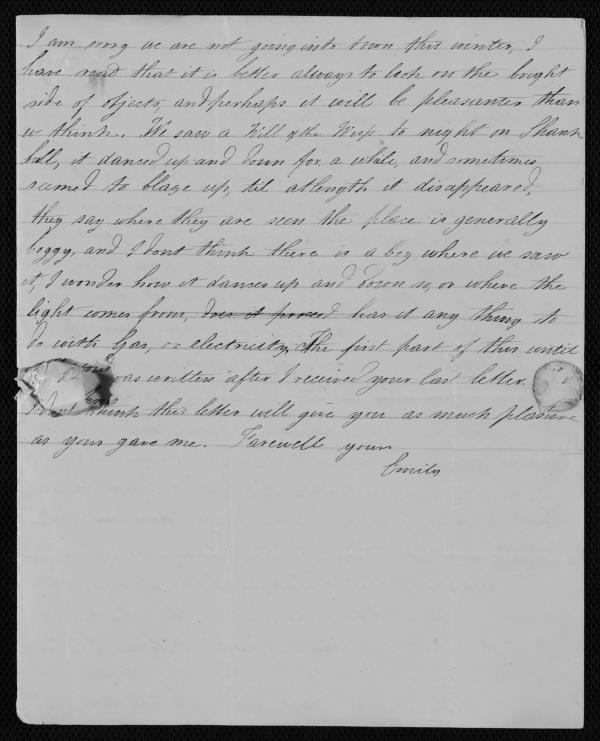 I am sorry we are not going into town this winter, I
have read that it is better always to look on the bright
side of objects, and perhaps it will be pleasanter than
we think. We saw a Will of the Wisp to night on
hill, it danced up and down for a while, and sometimes
seemed to blaze up, til at length it disappeared,
they say where they are seen the place is generally
boggy, and I dont think there is a bog where we saw
it, I wonder how it dances up and down so, or where the
light comes from, does it proceed has it any thing to
do with Gas, or electricity, The first part of this until
was written after I received your last letter. I
dont think this letter will give you as much pleasure
as your gave me. Farewell yours
Emily